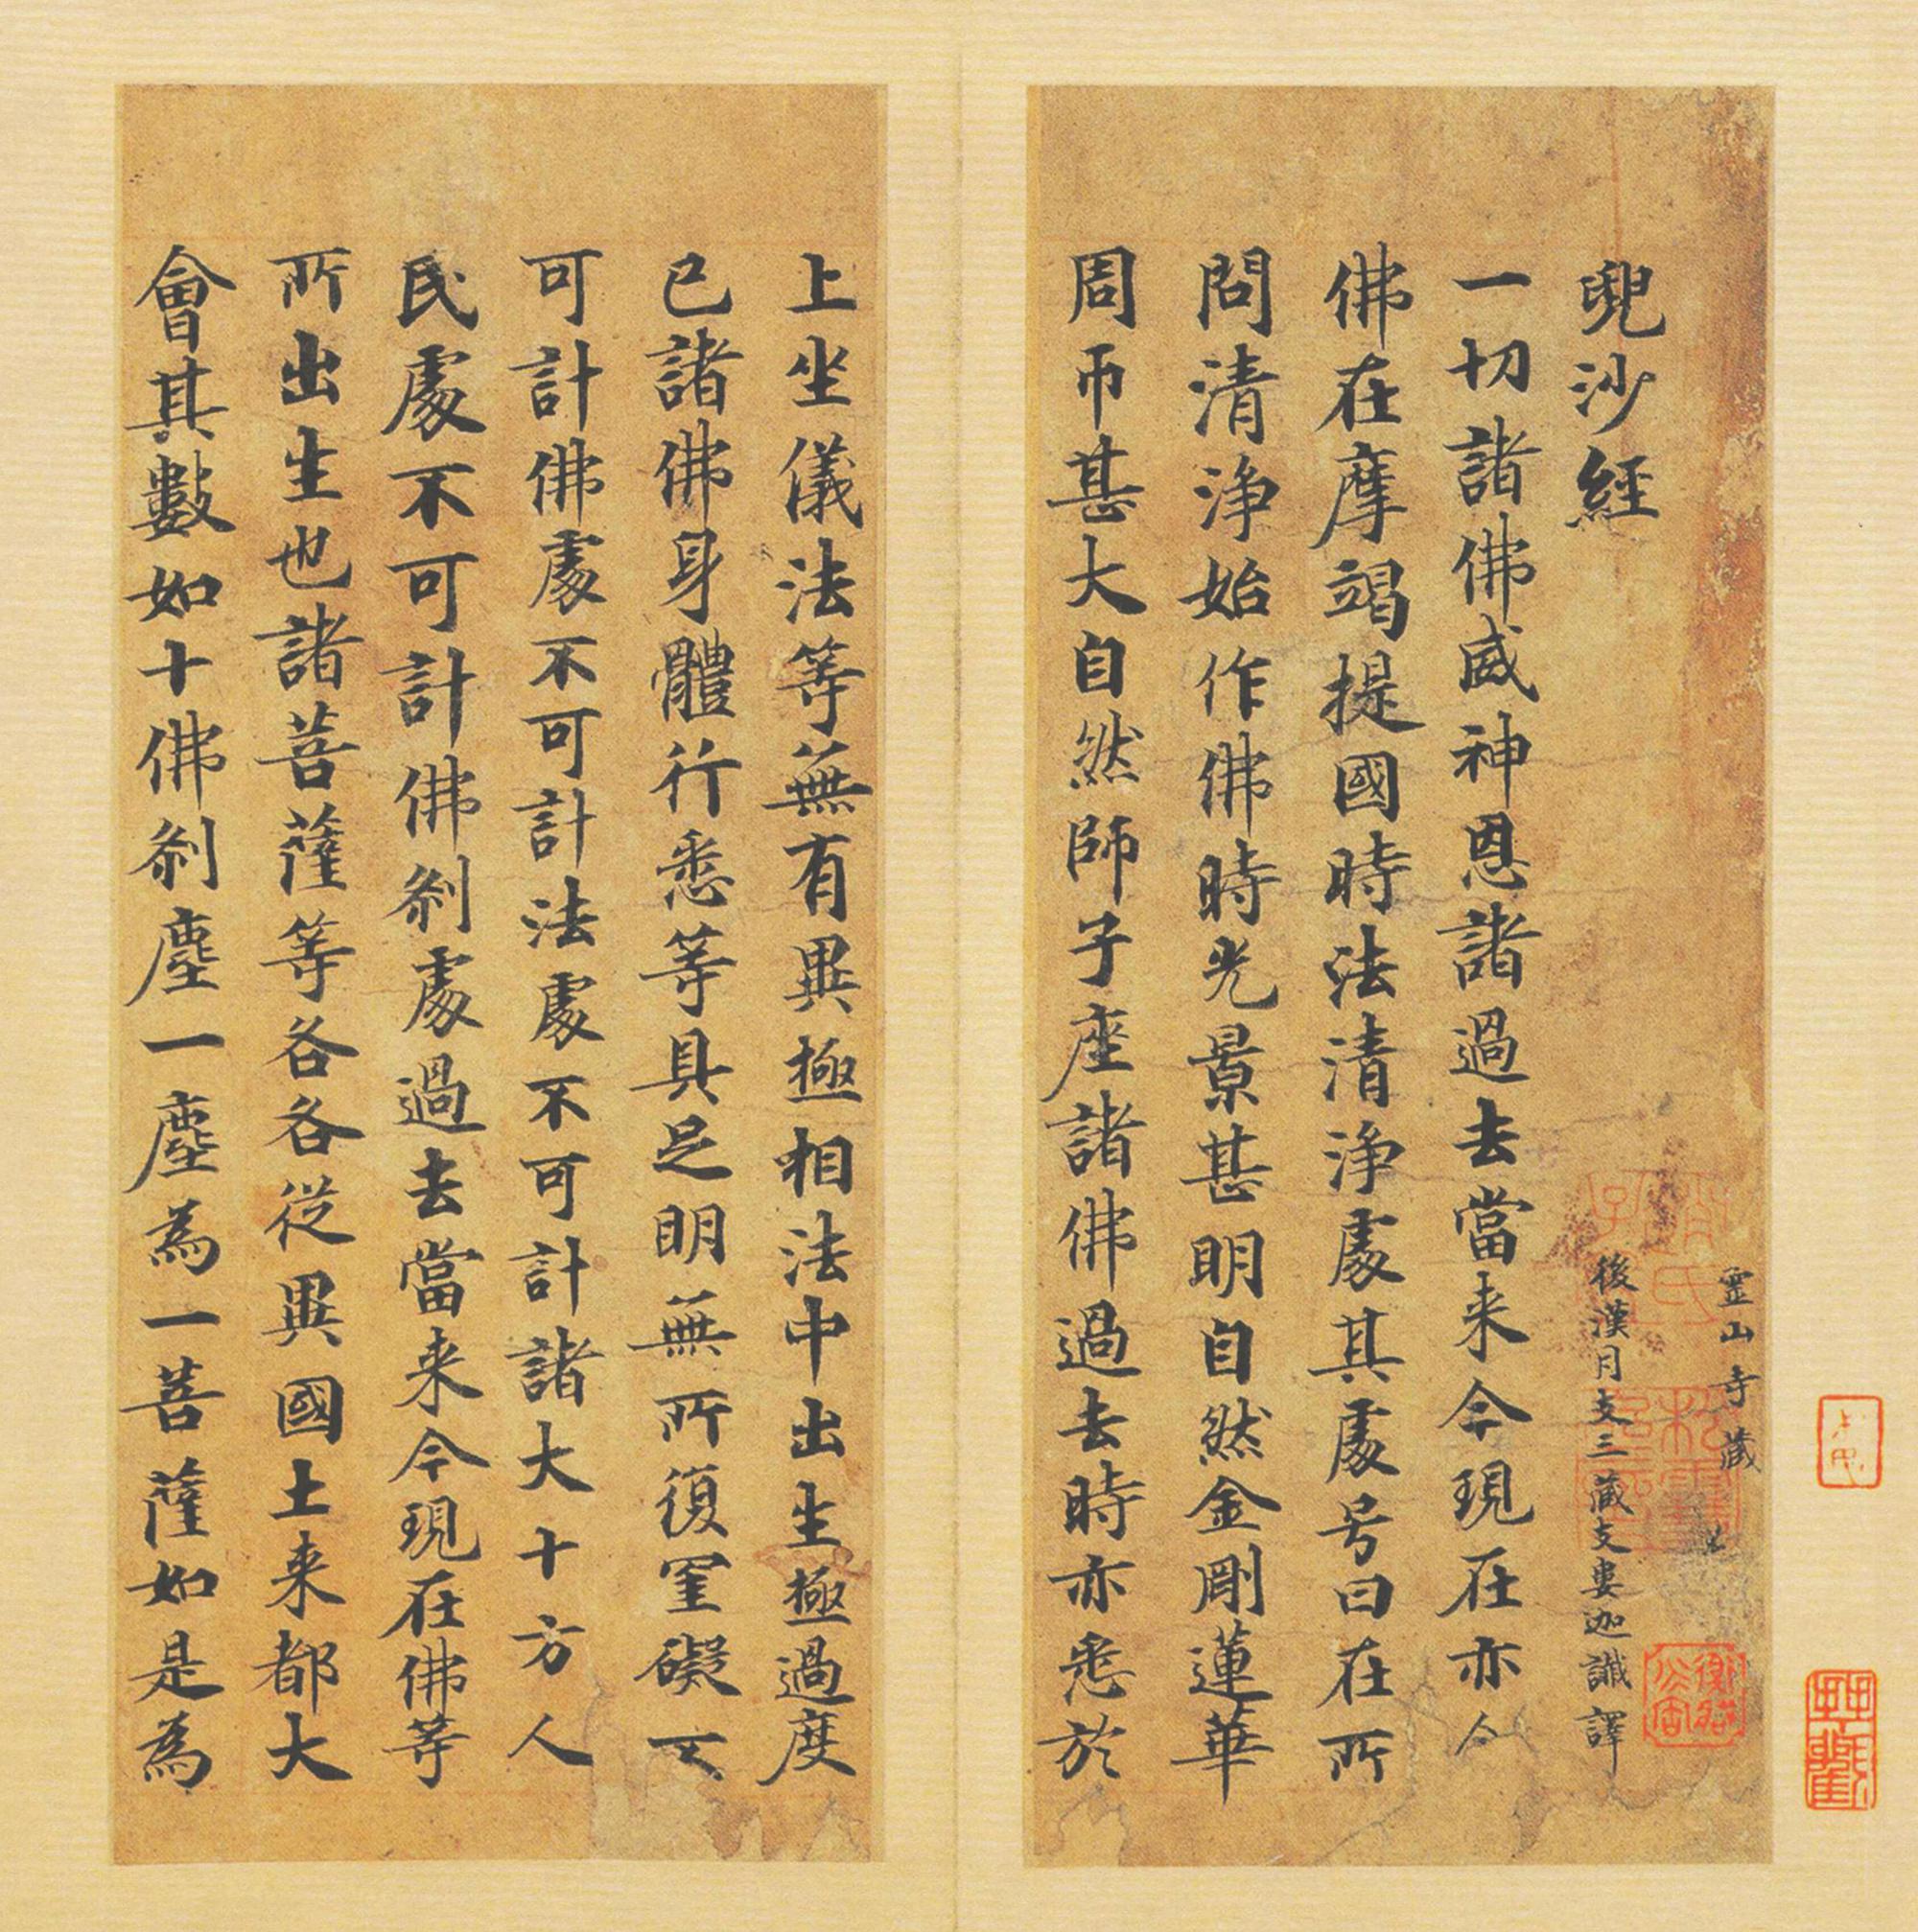 靈山寺藏
兜沙經
後漢月支三藏支婁迦讖譯
一切諸佛威神恩諸過去當来今現在亦今
佛在摩竭提國時法清浄處其處号曰在所
問清浄始作佛時光景甚明自然金剛蓮華
周帀甚大自然師子座諸佛過去時亦悉於
上坐儀法等無有異極相法中出生極過度
已諸佛身體行悉等具足明無所復罣礙不
可計佛處不可計法處不可計諸大十方人
民處不可計佛刹處過去當来今現在佛等
所出生也諸菩薩等各各從異國土来都大
會其數如十佛刹塵一塵為一菩薩如是為